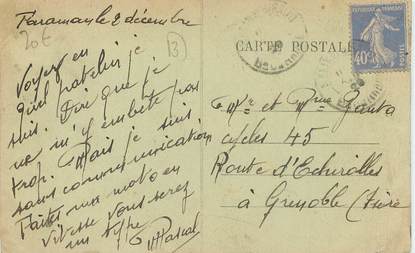 Faraman le 2 décembre
20€
13
Voyez en
quel patelin je
suis. Dire que je
ne m'y embête pas
trop. Mais je suis
sans communication
Faites une moto en
vitesse vous serez
un type
Pascal
CARTE POSTALE
RÉPUBLIQUE FRANÇAISE
40c
POSTES
Mr et Mme Ganta
cycles 45
Route d'Echirolles
à Grenoble (Isère)